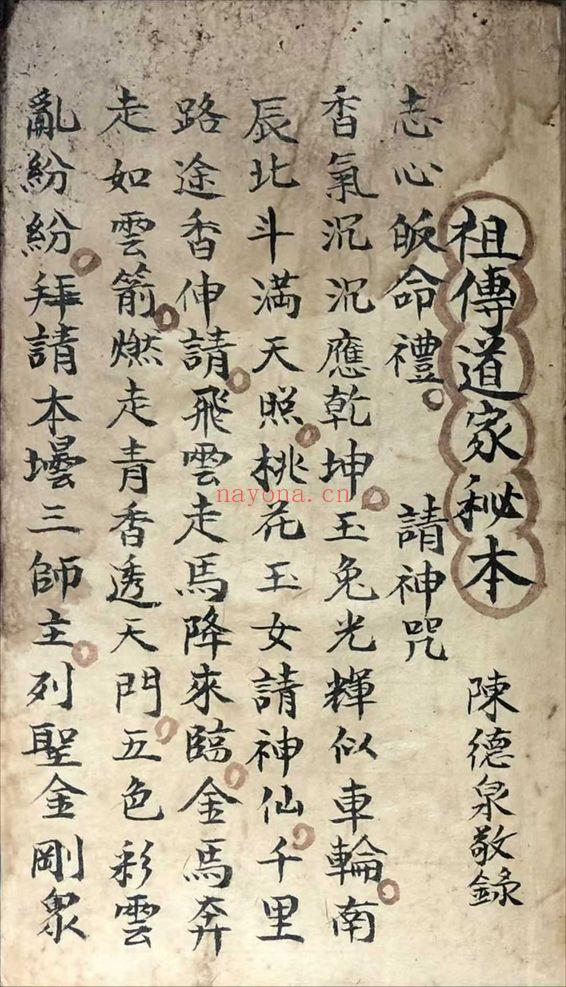 祖傳道家秘本 陳德泉敬錄
志心皈命禮。 請神咒
香氣沉沉應乾坤。玉兔光輝似車輪。南
辰北斗滿天照。桃花玉女請神仙。千里
路途香伸請。飛雲走馬降來臨。金馬奔
走如雲箭。燃走青香透天門。五色彩雲
亂紛紛。拜請本壇三師主。列聖金剛眾
nayona.cn